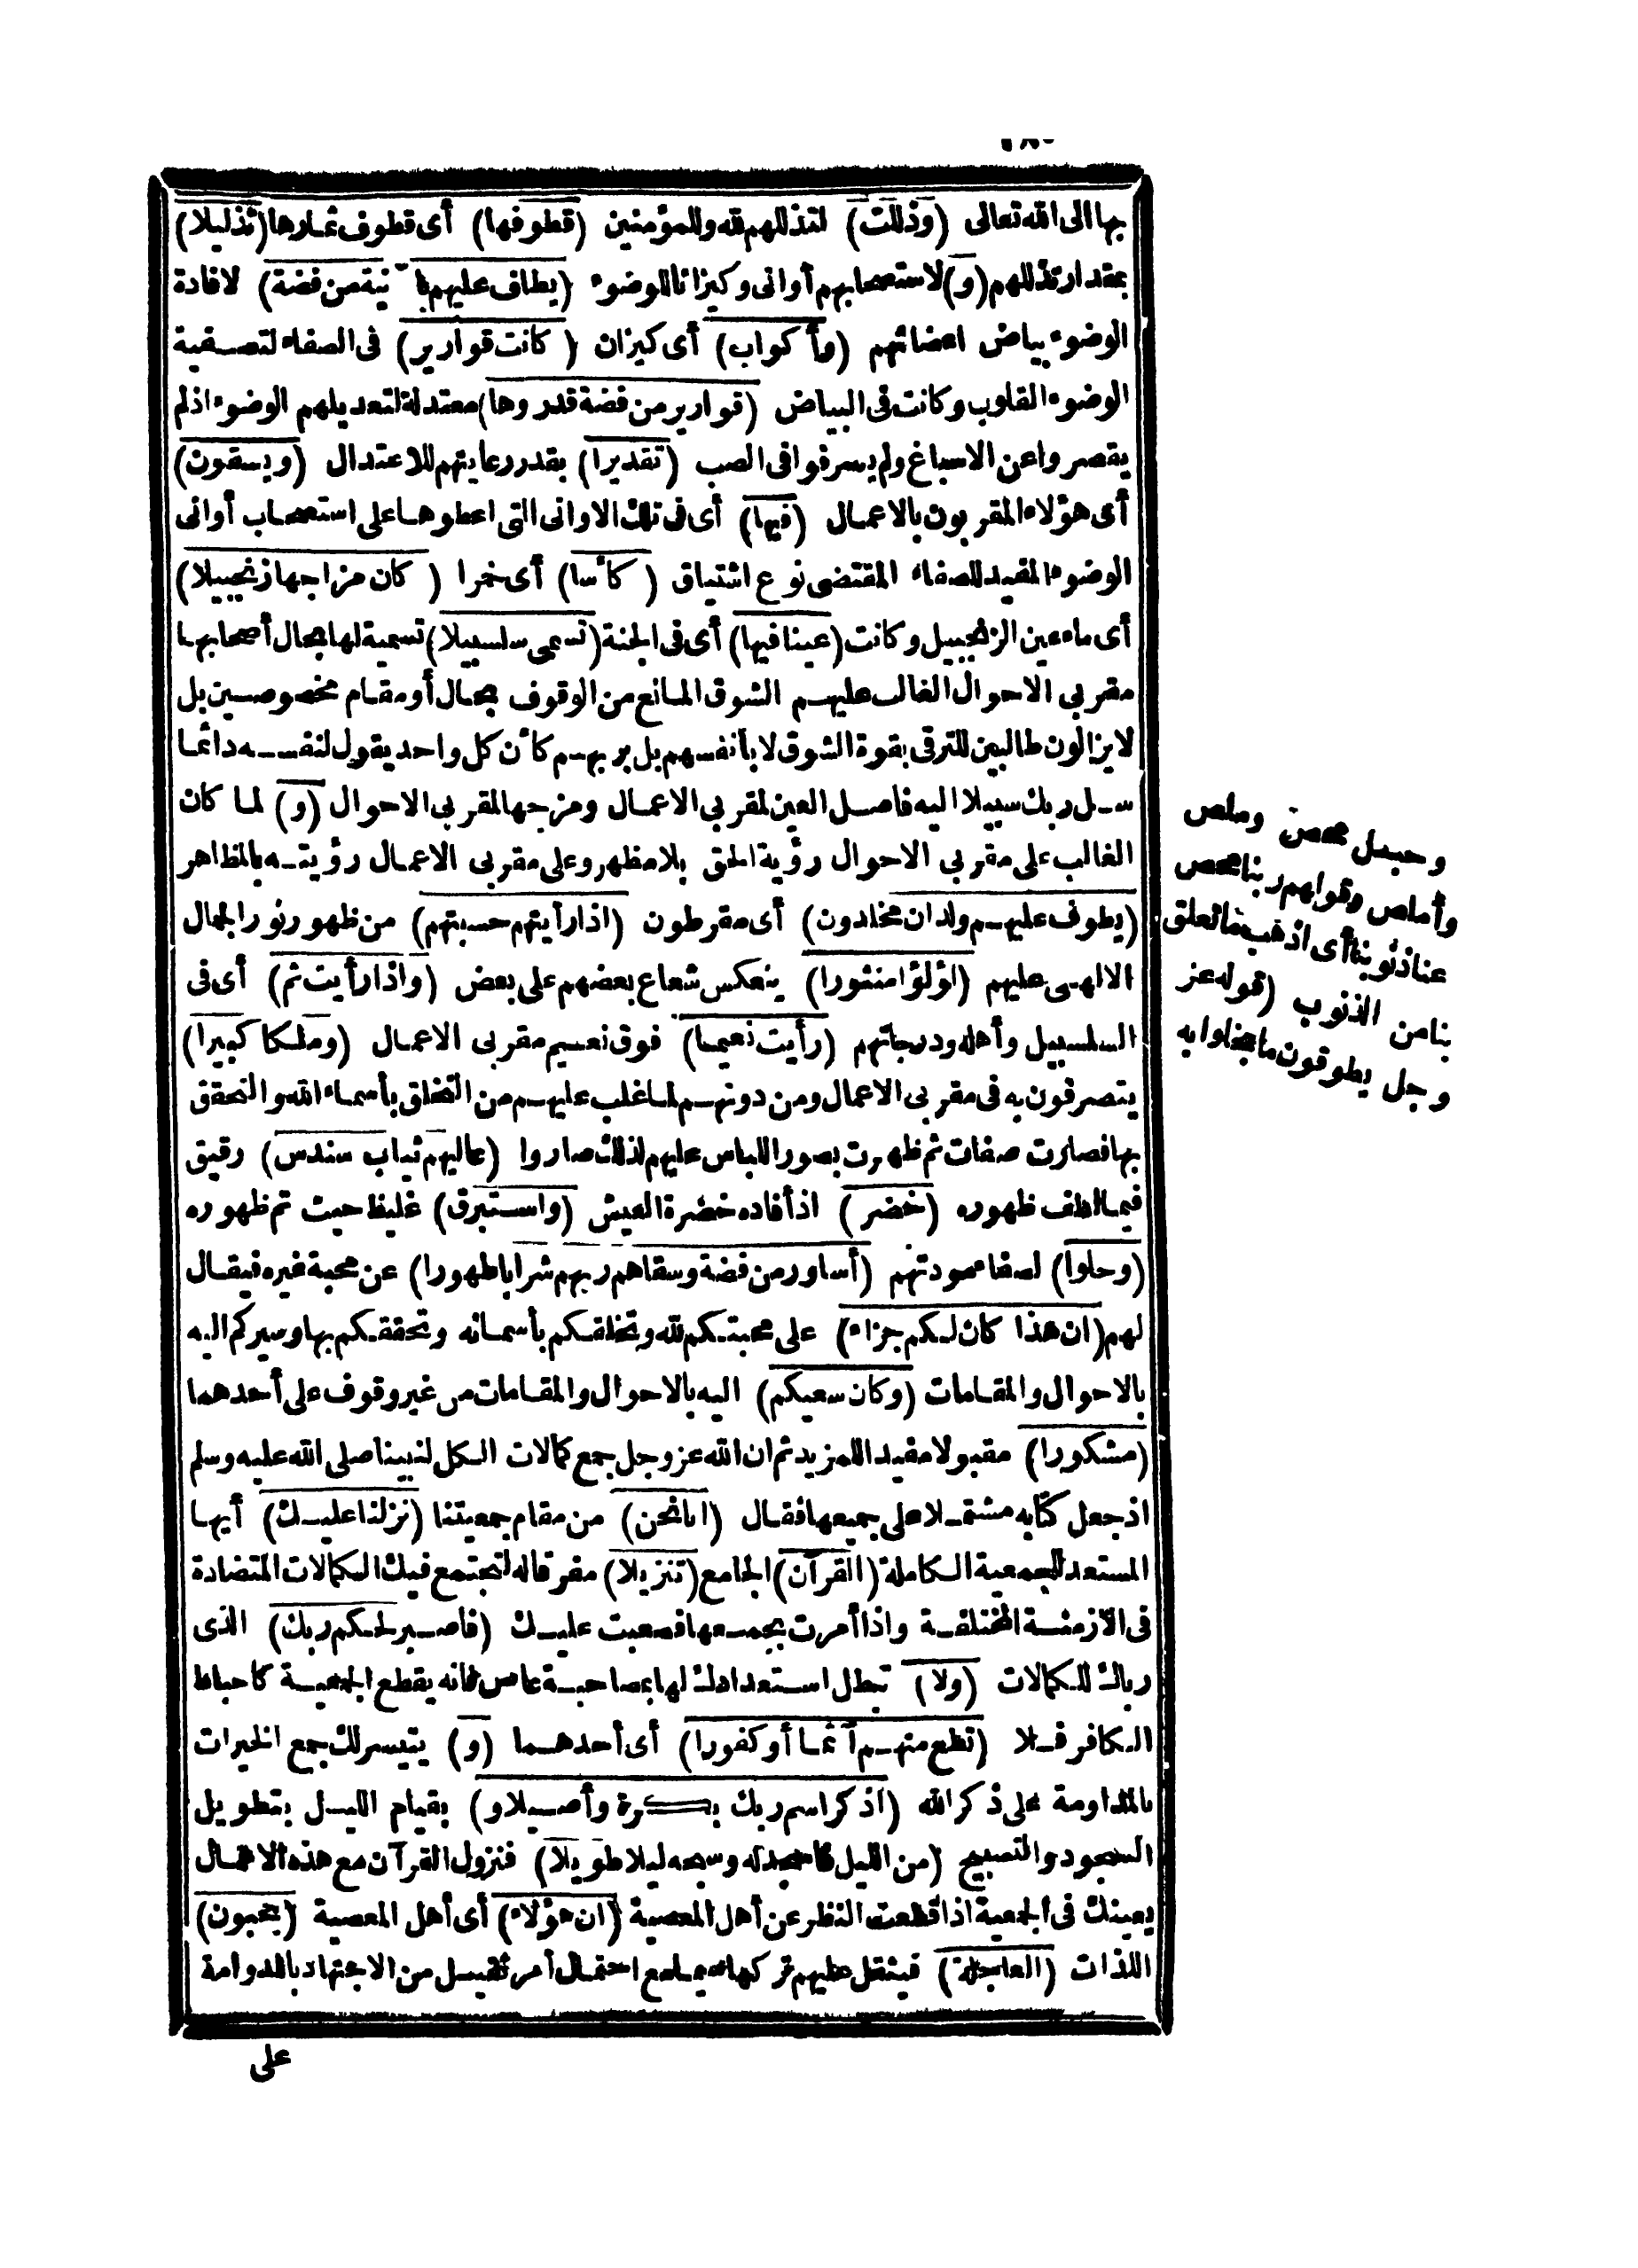 بها الى الله تعالى (وذللت) لتذللهم لله وللمؤمنين (قطوفها) أى قطوف ثمارها (تذليلا)
بمقدار تذللهم (و) لاستصحابهم أوانى وكيزانا للوضوء (يطاف عليهم بآنية من فضة) لافادة
الوضوء بياض اعضائهم (وأكواب) أى كيزان (كانت قوارير) فى الصفاء لتصفية
الوضوء القلوب وكانت فى البياض (قوارير من فضة قدروها) معتدلة لتعديلهم الوضوء اذ لم
يقصروا عن الاسباغ ولم يسرفوا فى الصب (تقديرا) بقدر رعايتهم للاعتدال (ويسقون)
أى هؤلاء المقربون بالاعمال (فيها) أى فى تلك الاوانى التى اعطوها على استصحاب أوانى
الوضوء المفيد للصفاء المقتضى نوع اشتياق (كأسا) أى خمرا (كان مزاجها زنجبيلا)
أى ماء عين الزنجبيل وكانت (عينا فيها) أى فى الجنة (تسمى سلسبيلا) تسمية لها بحال أصحابها
مقربى الاحوال الغالب عليهم الشوق المانع من الوقوف بحال أو مقام مخصوصين بل
لايزالون طالبين للترقى بقوة الشوق لا بأنفسهم بل بربهم كأن كل واحد يقول لنفسه دائما
سل ربك سبيلا اليه فاصل العين لمقربى الاعمال ومزجها لمقربى الاحوال (و) لما كان
الغالب على مقربى الاحوال رؤية الحق بلا مظهر وعلى مقربى الاعمال رؤيته بالمظاهر
(يطوف عليهم ولدان مخلدون) أى مقرطون (اذا رأيتهم حسبتهم) من ظهور نور الجمال
الالهى عليهم (لؤلؤا منثورا) ينعكس شعاع بعضهم على بعض (واذا رأيت ثم) أى فى
السلسبيل وأهله ودرجاتهم (رأيت نعيما) فوق نعيم مقربى الاعمال (وملكا كبيرا)
يتصرفون به فى مقربى الاعمال ومن دونهم لما غلب عليهم من التخلق بأسماء الله والتحقق
بها فصارت صفات ثم ظهرت بصور اللباس عليهم لذلك صاروا (عاليهم ثياب سندس) رقيق
فيما لطف ظهوره (خضر) اذ أفاده خضرة العيش (واستبرق) غليظ حيث تم ظهوره
(وحلوا) لصفاء مودتهم (أساور من فضة وسقاهم ربهم شرابا طهورا) عن محبة غيره فيقال
لهم (ان هذا كان لكم جزاء) على محبتكم لله وتخلقكم بأسمائه وتحققكم بها وسيركم اليه
بالاحوال والمقامات (وكان سعيكم) اليه بالاحوال والمقامات من غير وقوف على أحدهما
(مشكورا) مقبولا مفيدا للمزيد ثم ان الله عز وجل جمع كمالات الكل لنبينا صلى الله عليه وسلم
اذ جعل كتابه مشتملا على جميعها فقال (انا نحن) من مقام جمعيتنا (نزلنا عليك) أيها
المستعد للجمعية الكاملة (القرآن) الجامع (تنزيلا) مفرقا له لتجتمع فيك الكمالات المتضادة
فى الازمنة المختلفة واذا أمرت بجمعها فصعبت عليك (فاصبر لحكم ربك) الذى
رباك للكمالات (ولا) تبطل استعدادك لها بمصاحبة عاص فانه يقطع الجمعية كاحباط
الكافر فلا (تطع منهم آثما أو كفورا) أى أحدهما (و) يتيسر لك جمع الخيرات
بالمداومة على ذكر الله (اذكر اسم ربك بكرة وأصيلا و) بقيام الليل بتطويل
السجود والتسبيح (من الليل فاسجد له وسبحه ليلا طويلا) فنزول القرآن مع هذه الاعمال
يعينك فى الجمعية اذا قطعت النظر عن أهل المعصية (ان هؤلاء) أى أهل المعصية (يحبون)
اللذات (العاجلة) فيثقل عليهم تركها سيما مع احتمال أمر ثقيل من الاجتهاد بالمداومة
على
وحبل محص وملص
وأملص وقولهم ربنا محص
عنا ذنوبنا أى اذهب ما تعلق
بنا من الذنوب (قوله عز
وجل يطوقون ما بخلوا به